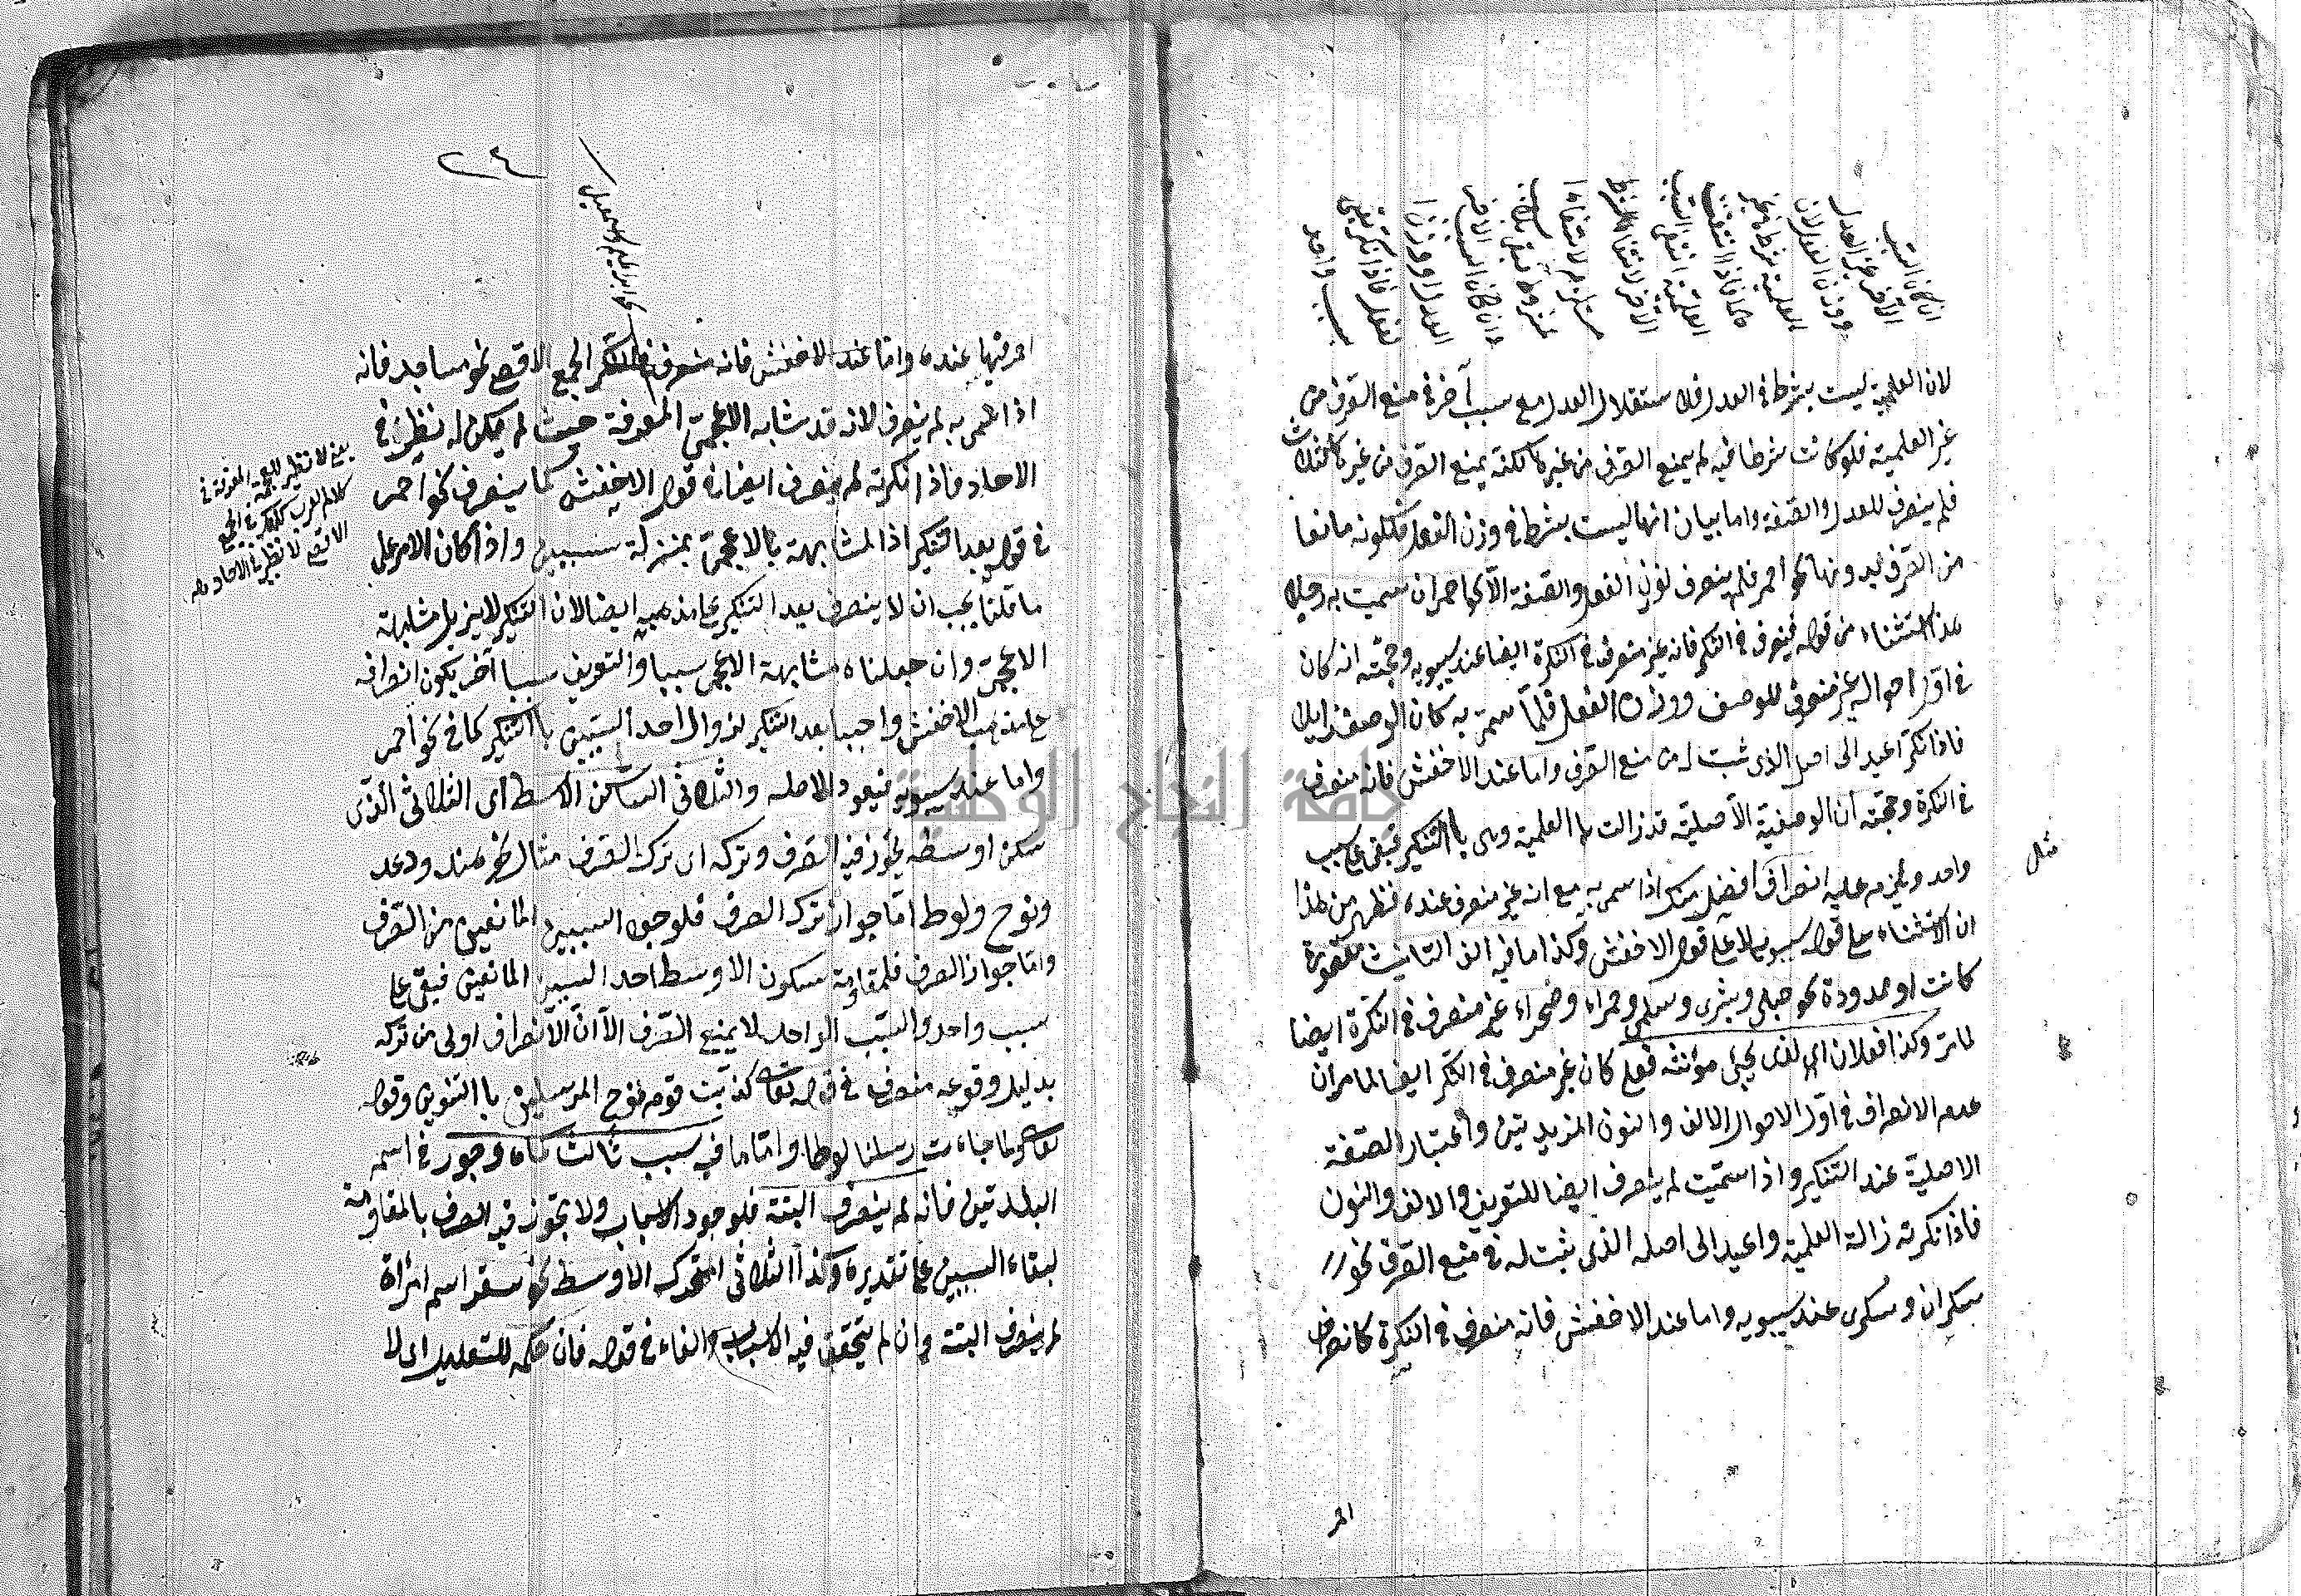 لان العلمية ليست بشرط في العدل فلاستقلال العدل مع سبب آخر في منع الصرف من
غير العلمية فلو كانت شرطا فيه لم يمنع الصرف من غيرها لكنه يمنع الصرف من غيرها كثلاث
فلم ينصرف للعدل والصفة واما بيان انها ليست بشرط في وزن الفعل فلكونه مانعا
من الصرف بدونها نحو احمر فلم ينصرف لوزن الفعل والصفة الا نحو احمر ان سميت به رجلا
هذا استثناء من قوله فينصرف في النكر فانه غير منصرف في النكرة ايضا عند سيبويه وحجته انه كان
في اول احواله غير منصرف للوصف ووزن الفعل فلما سمى به كان الوصف زايلا
فاذا نكر اعيد الى اصل الذى ثبت له من منع الصرف واما عند الاخفش فانه منصرف
في النكرة وحجته ان الوصفية الاصلية قد زالت بالعلمية وهى باالتنكير فبقى على سبب
واحد ويلزمه عليه انصراف افضل منك اذا سمى به مع انه غير منصرف عنده فظهر من هذا
ان الاستثناء على قول سيبويه لا على قول الاخفش وكذا ما فيه الف التانيث مقصورة
كانت او ممدودة نحو حبلى وبشرى وسلمى وحمراء وصحراء غير منصرف في النكرة ايضا
لما مر وكذا فعلان الذى يجئ مؤنثه فعلى كان غير منصرف في النكر ايضا لما مر ان
عدم الانصراف في اول الاحوال الالف والنون المزيدتين واعتبار الصفة
الاصلية عند التنكير واذا سميت لم ينصرف ايضا للتعريف والالف والنون
فاذا نكرته زالت العلمية واعيد الى اصله الذى ثبت له في منع الصرف نحو
سكران وسكرى عند سيبويه واما عند الاخفش فانه منصرف في النكرة كانصراف
مثل
احمر
٢٤
نحو ابراهيم واسمعيل
احمر فيها عنده واما عند الاخفش فانه منصرف الجمع الاقصى نحو مساجد فانه
اذا سمى به لم ينصرف لانه قد شابه الاعجمى المعرفة حيث لم يكن له نظير في
الاحاد فاذا نكرته لم ينصرف ايضا في قول الاخفش كما ينصرف نحو احمر
في قوله بعد التنكير اذ المشابهة بالاعجمى بمنزلة سببين واذا كان الامر على
ما قلنا يجب ان لا ينصرف بعد التنكير على مذهبه ايضا لان التنكير لا يزيل مشابهته
الاعجمى وان جعلناه مشابهة الاعجمى سببا والتعريف سببا آخر يكون انصرافه
على مذهب الاخفش واجبا بعد التنكير لزوال احد السببين باالتنكير كما في نحو احمر
واما عند سيبويه فيعود لاصله والثلاثى الساكن الاوسط اى الثلاثى الذى
سكن اوسطه يجوز فيه الصرف وتركه اى ترك الصرف مثال نحو هند ودعد
ونوح ولوط اما جواز ترك الصرف فلوجود السببين المانعين من الصرف
واما جواز الصرف فلمقاومة سكون الاوسط احد السببين المانعين فبقى على
سبب واحد والسبب الواحد لا يمنع الصرف الا ان الانصراف اولى من تركه
بدليل وقوعه منصرفا في قوله تعالى كذبت قوم نوح المرسلين باالتنوين وقوله
تعالى ولما جاءت رسلنا لوطا واما ما فيه سبب ثالث كماه وجور في اسم
البلدتين فانه لم ينصرف البتة فلوجود الاسباب ولا يجوز فيه الصرف بالمقاومة
لبقاء السببين على تقديره وكذا الثلاثى المتحرك الاوسط نحو سقر اسم امرأة
لم ينصرف البتة وان لم يتحقق فيه الاسباب والفاء في قوله فان حكمه للتعليل اى لا
يعنى لا نظير للعجمة المعرفة في
كلام العرب كذلك الجمع
الاقصى لا نظير في الاحاد
جامعة النجاح الوطنية